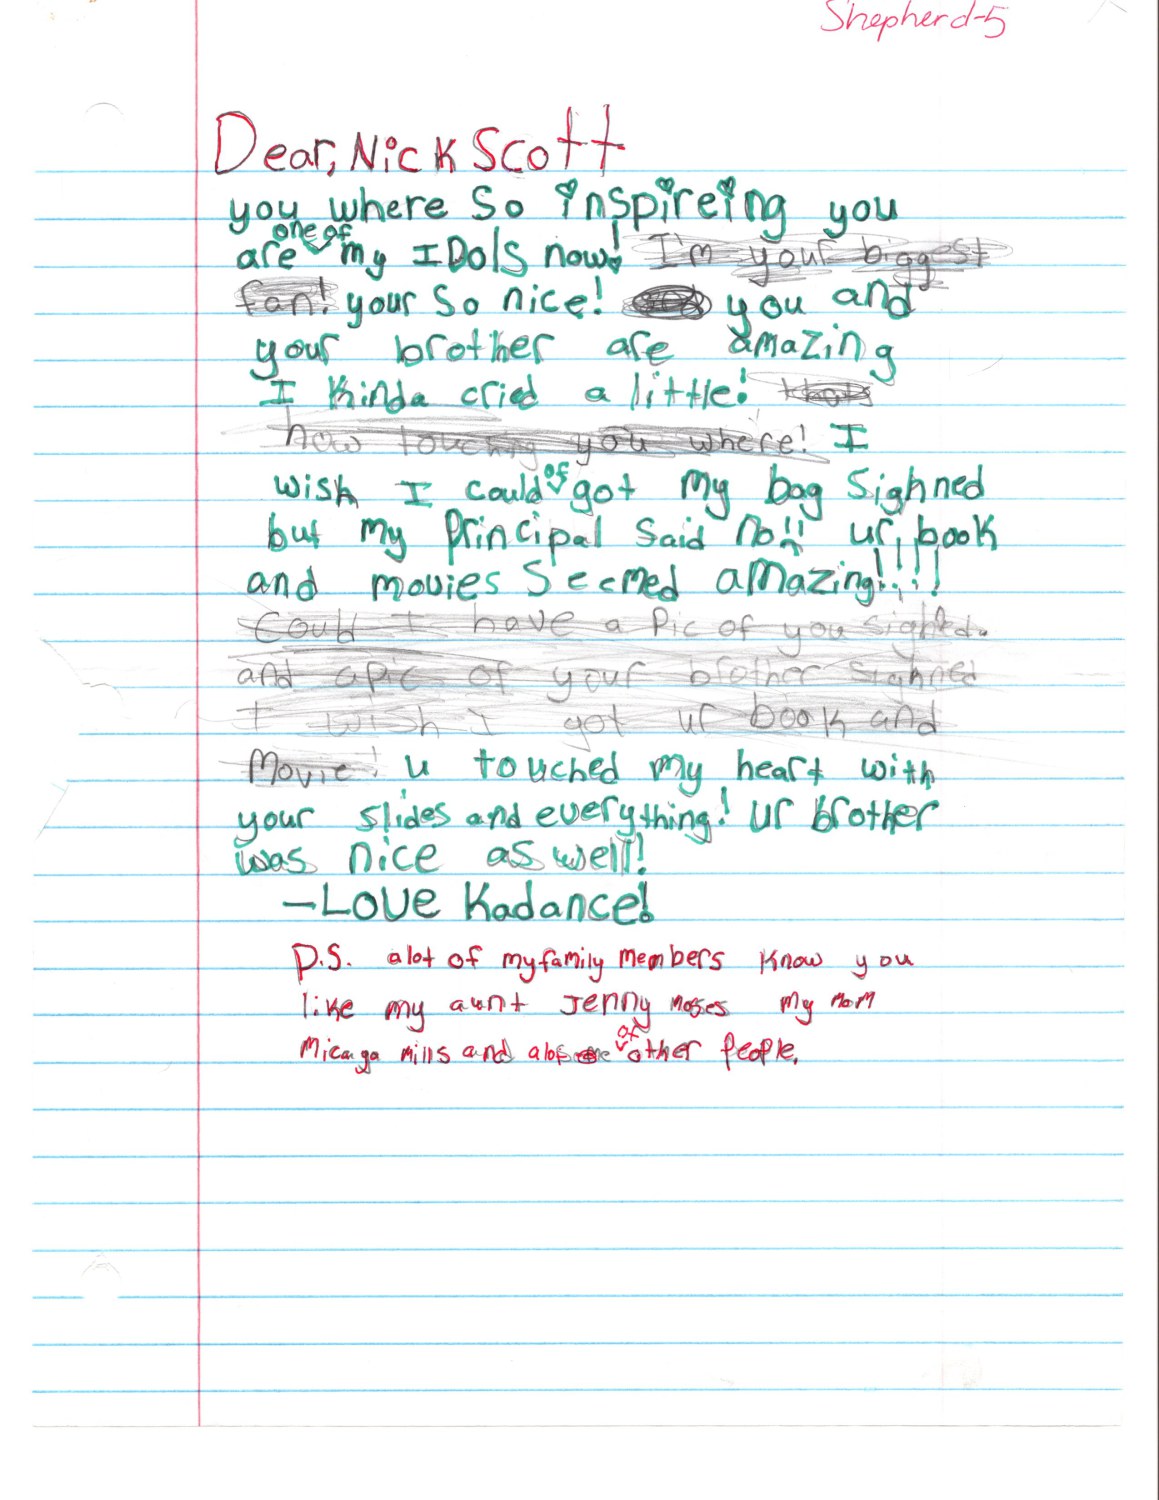 Shepherd-5
Dear, Nick Scott
you where so inspireing you
one of
are my IDols now! I'm your biggest
fan! your so nice! you and
your brother are amazing
I kinda cried a little!
how touching you where! I
of
wish I could got my bag sighned
but my principal said no!! ur book
and movies seemed amazing!!!!
Could I have a pic of you sighned.
and a pic of your brother sighned
I wish I got ur book and
movie! u touched my heart with
your slides and everything! ur brother
was nice as well!
-Love Kadance!
P.S. alot of my family members know you
like my aunt Jenny Moses my mom
of
mills and alot other people.